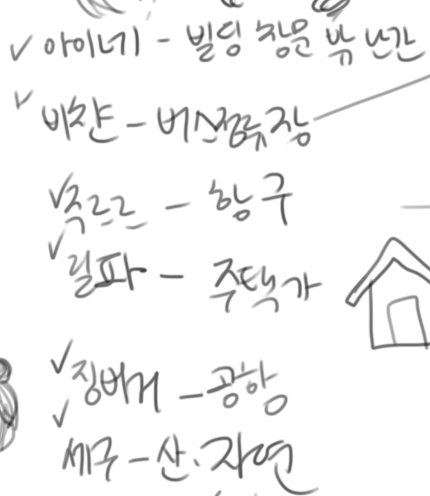 아이네 - 빌딩 창문 밖 난간
비챤 - 버스정류장
쥭르르 - 항구
릴파 - 주택가
징버거 - 공항
세구 - 산·자연